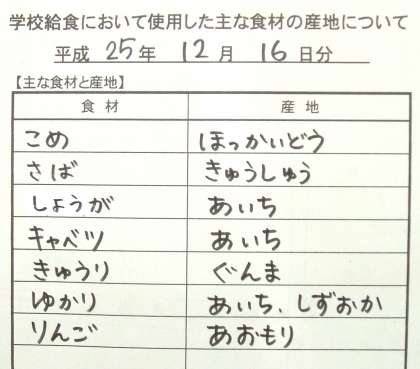 学校給食において使用した主な食材の産地について
平成 25年 12月 16日分
【主な食材と産地】
食材 産地
こめ ほっかいどう
さば きゅうしゅう
しょうが あいち
キャベツ あいち
きゅうり ぐんま
ゆかり あいち、しずおか
りんご あおもり